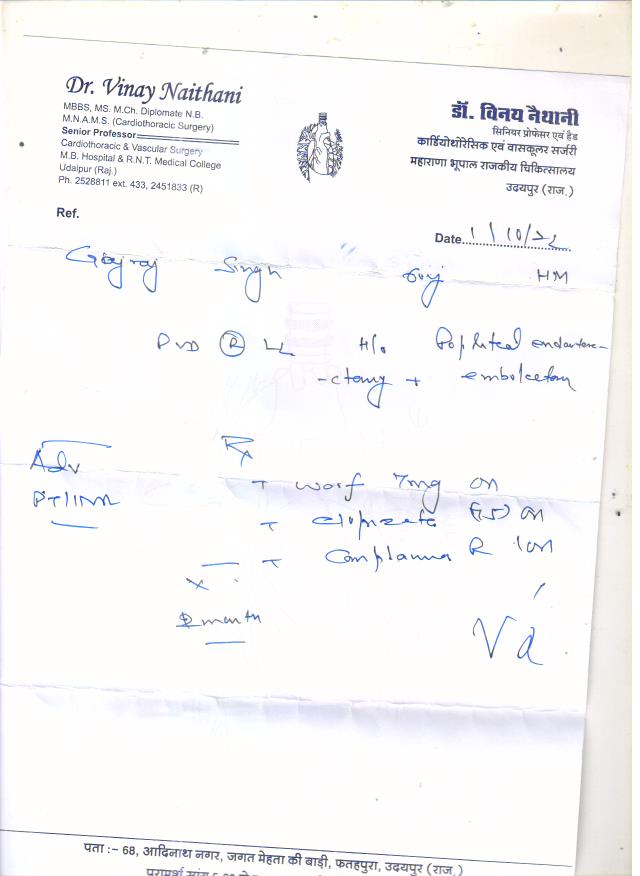 Dr. Vinay Naithani
MBBS, MS. M.Ch. Diplomate N.B.
M.N.A.M.S. (Cardiothoracic Surgery)
Senior Professor
Cardiothoracic & Vascular Surgery
M.B. Hospital & R.N.T. Medical College
Udaipur (Raj.)
Ph. 2528811 ext. 433, 2451833 (R)
डॉ. विनय नैथानी
सिनियर प्रोफेसर एवं हैड
कार्डियोथोरेसिक एवं वासकूलर सर्जरी
महाराणा भूपाल राजकीय चिकित्सालय
उदयपुर (राज.)
Ref.
Date 1/10/22
Gajraj Singh HM
PVD R LL H/o Popliteal endartere-
-ctomy + embolectomy
Adv Rx
T Warf 7mg ON
PT/INR
T ON
T R 1ON
month
पता :- 68, आदिनाथ नगर, जगत मेहता की बाड़ी, फतहपुरा, उदयपुर (राज.)